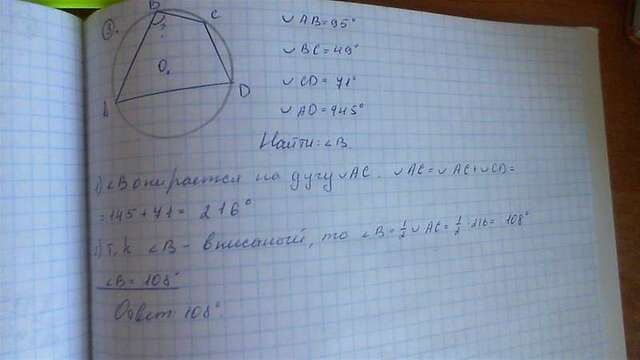 3.
B
C
?
O
A
D
◡ AB = 95°
◡ BC = 49°
◡ CD = 71°
◡ AD = 145°
Найти: ∠B
1) ∠B опирается на дугу ◡ AC. ◡ AC = ◡ AC + ◡ CD =
= 145 + 71 = 216°
2) Т.к ∠B - вписаной, то ∠B = 1/2 ◡ AC = 1/2 · 216 = 108°
∠B = 108°
Ответ: 108°.